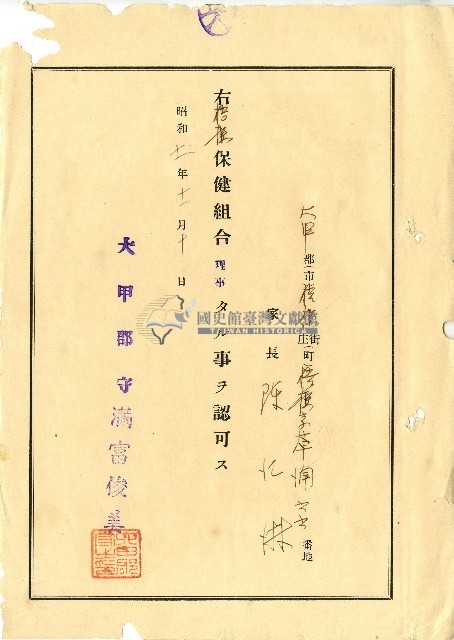 大甲郡市梧棲街庄町梧棲字草湳 番地
家長 陳 
右梧棲保健組合理事タル事ヲ認可ス
昭和十一年十二月十日
大甲郡守満富俊美
國史館臺灣文獻館
TAIWAN HISTORICA